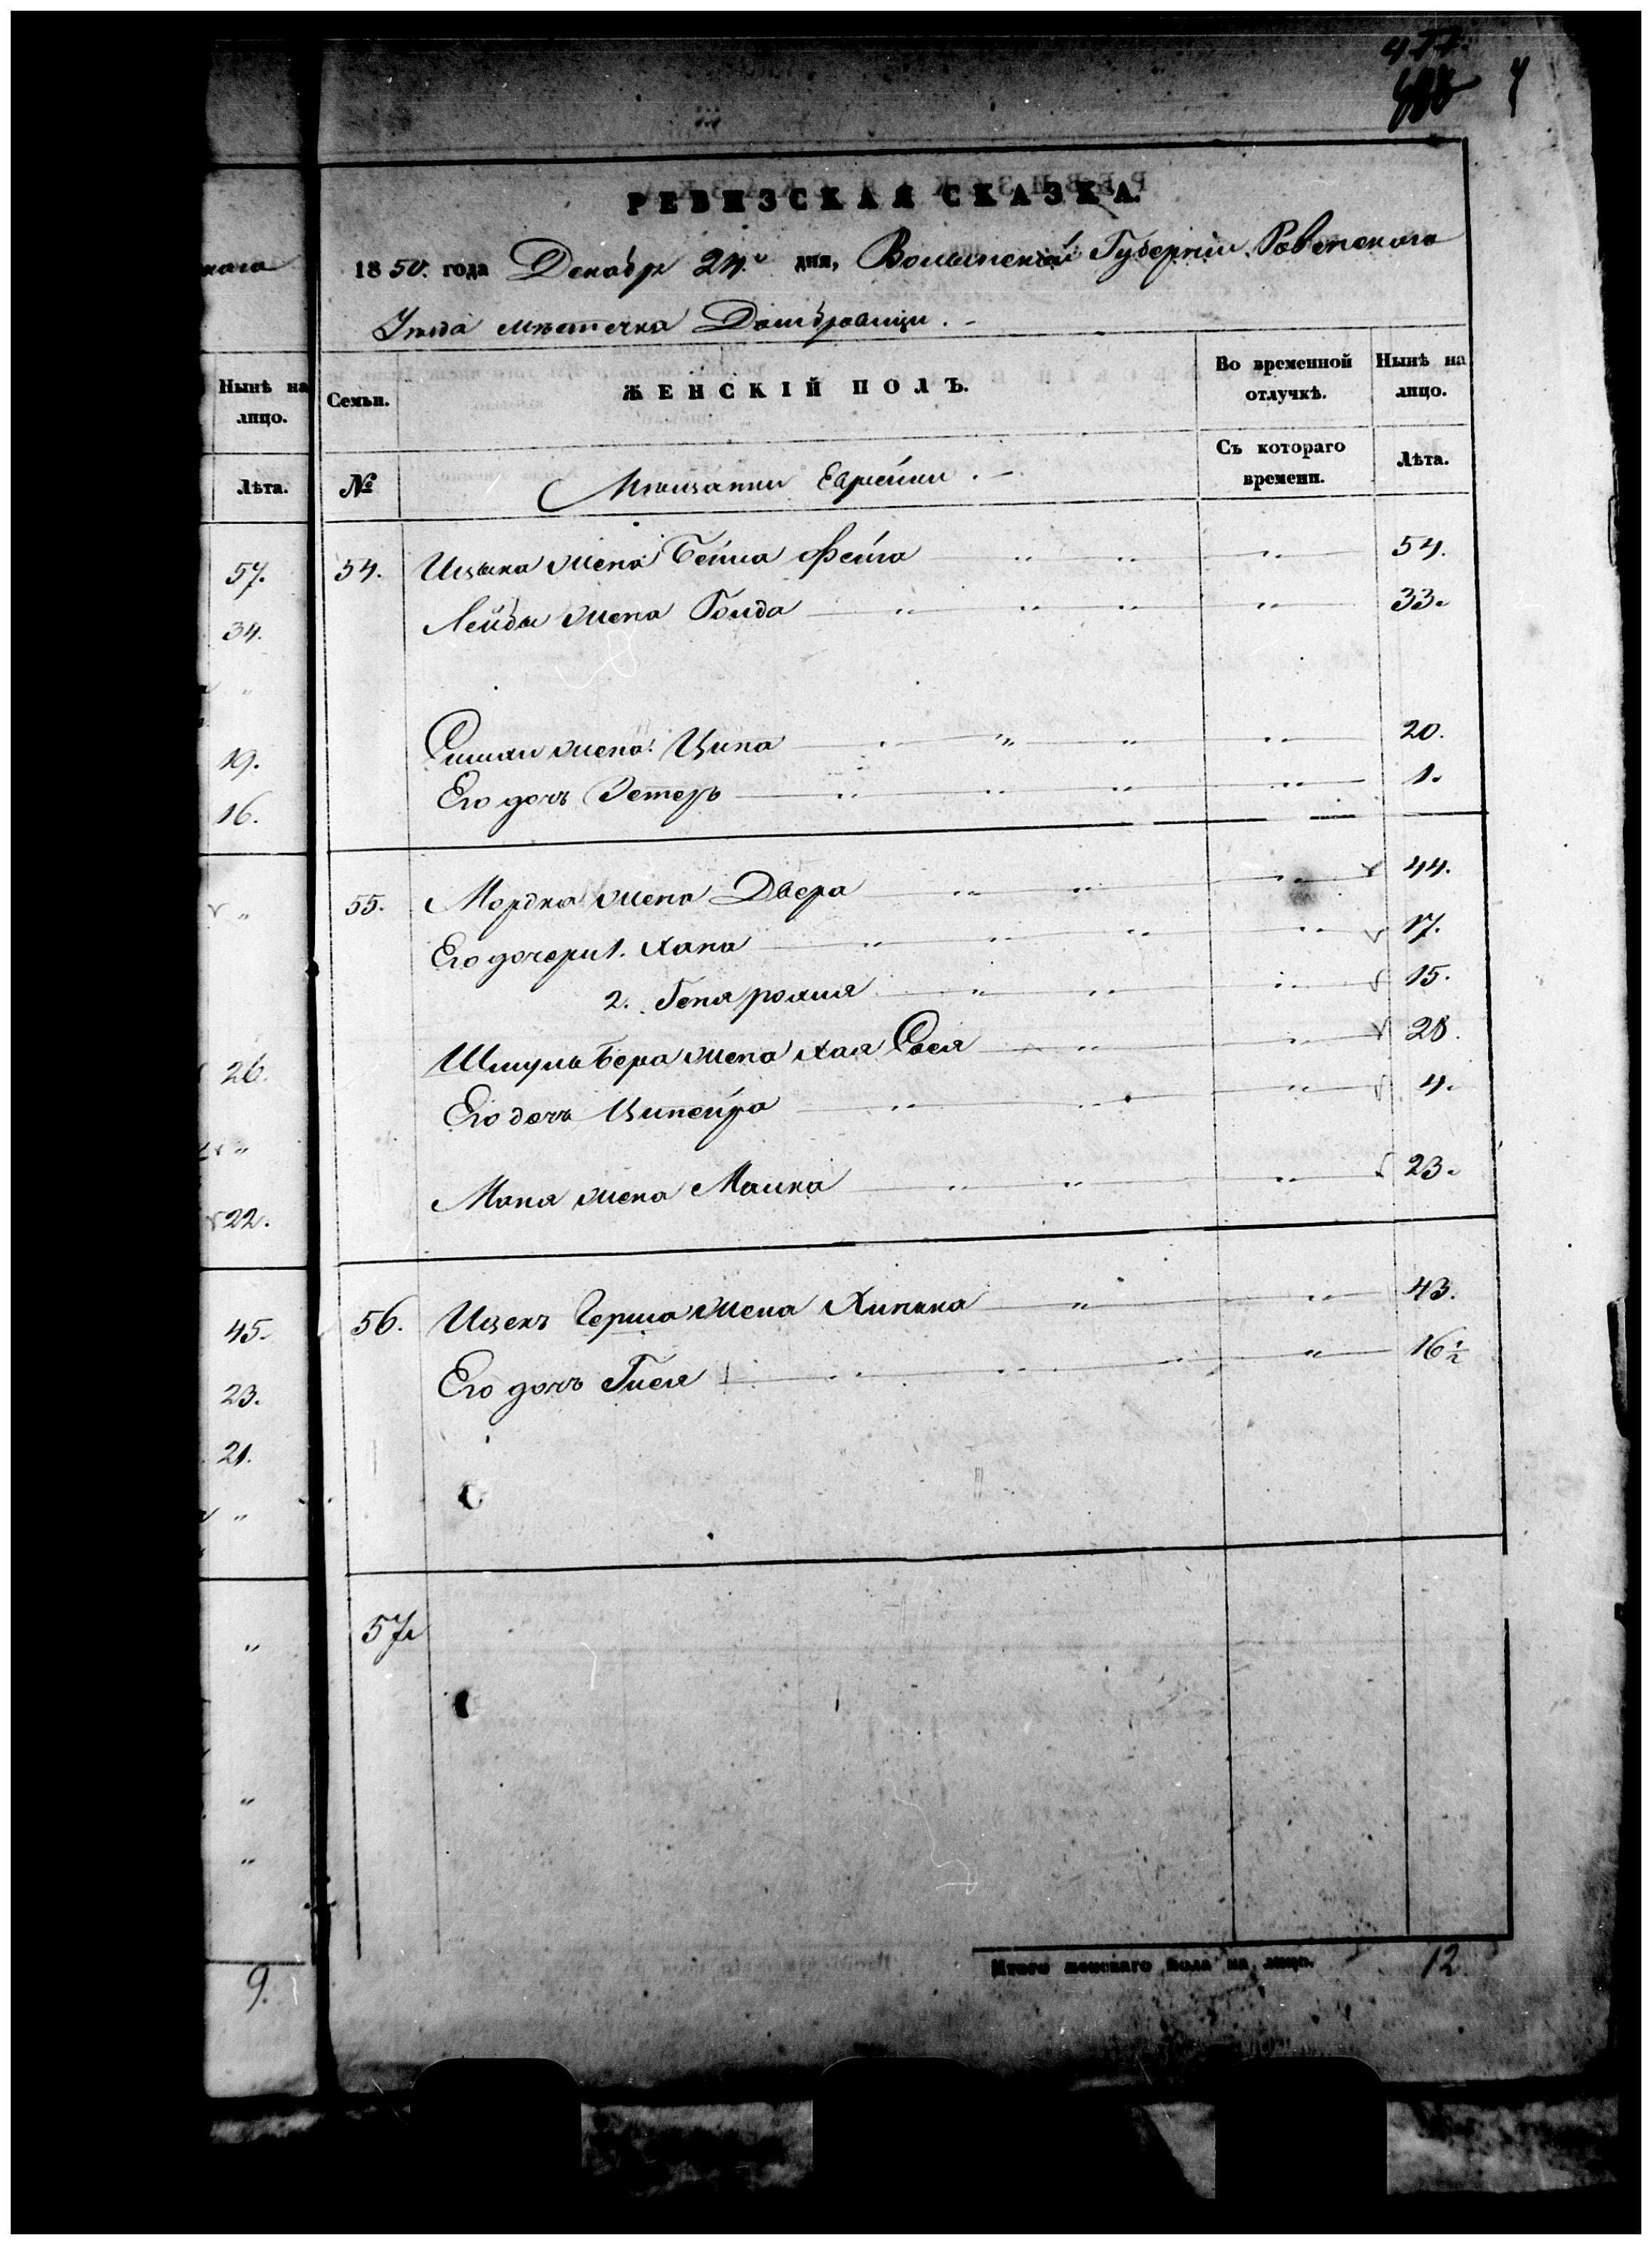 477.
РЕВИЗСКАЯ СКАЗКА.
1850. года Декабр 24.го дня, Волынской Губернiи Ровенского
Уезда местечка Домбровици. -
Нынѣ на лицо.
Семьи.
ЖЕНСКІЙ ПОЛЪ.
Во временной отлучкѣ.
Нынѣ на лицо.
Лѣта.
№
Мещанки Еврейки. -
Съ котораго времени.
Лѣта.
57. 54. Ицька жена Бейла Фейга " " " 54.
34. Лейбы жена Голда " " " " 33.
"
19. Симхи жена Ципа " " " " 20.
16. Его дочь Эстеръ " " " " 1.
" 55. Мордка жена Двера " " " 44.
Его дочери 1. Хана " " " " 17.
2. Геня рохля " " " 15.
26. Шмуль Бера жена Хая Сося " " 28.
Его дочь Ципейра " " " 4.
"
22. Маня жена Малка " " " 23.
45. 56. Ицекъ Герша жена Хинька " " 43.
23. Его дочь Гися " " " 16 1/2
21.
"
" 57.
"
"
9.
Итого женскаго пола на лицо. 12